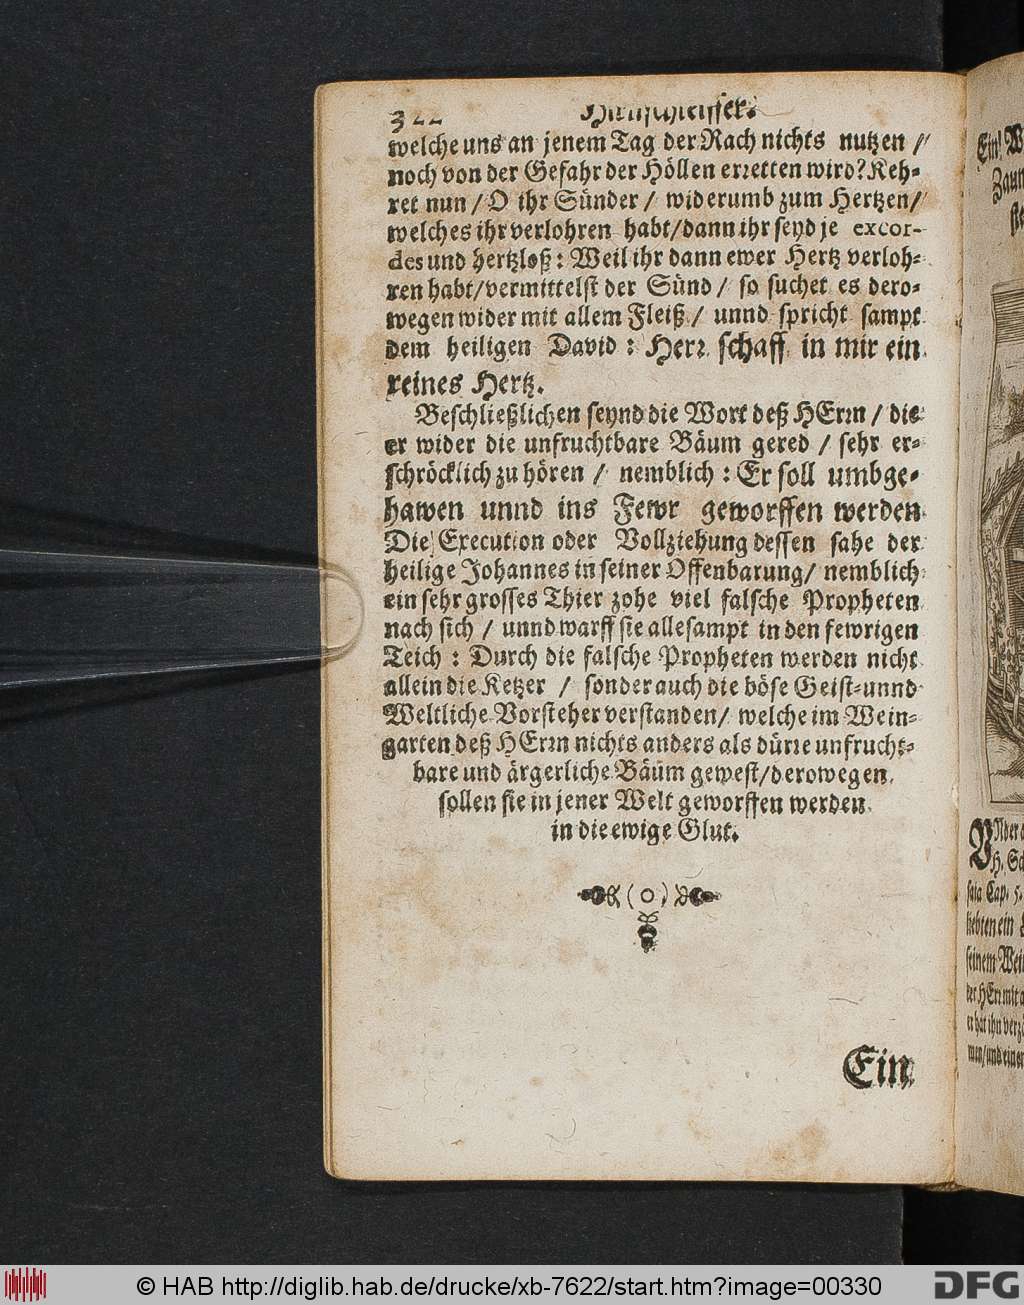 322
welche uns an jenem Tag der Rach nichts nutzen /
noch von der Gefahr der Höllen erretten wird? Keh-
ret nun / O ihr Sünder / widerumb zum Hertzen /
welches ihr verlohren habt / dann ihr seyd je excor-
des und hertzloß: Weil ihr dann ewer Hertz verloh-
ren habt / vermittelst der Sünd / so suchet es dero-
wegen wider mit allem Fleiß / unnd spricht sampt
dem heiligen David: Herr schaff in mir ein
reines Hertz.
Beschließlichen seynd die Wort deß HErrn / die
er wider die unfruchtbare Bäum gered / sehr er-
schröcklich zu hören / nemblich: Er soll umbge-
hawen unnd ins Fewr geworffen werden
Die Execution oder Vollziehung dessen sahe der
heilige Johannes in seiner Offenbarung / nemblich
ein sehr grosses Thier zohe viel falsche Propheten
nach sich / unnd warff sie allesampt in den fewrigen
Teich: Durch die falsche Propheten werden nicht
allein die Ketzer / sonder auch die böse Geist- unnd
Weltliche Vorsteher verstanden / welche im Wein-
garten deß HErrn nichts anders als dürre unfrucht-
bare und ärgerliche Bäum gewest / derowegen
sollen sie in jener Welt geworffen werden
in die ewige Glut.
(o)
Ein
Ein!
UNder
H.
saia Cap. 5.
liebten ein
seinem
der HErr mit
er hat ihn
© HAB http://diglib.hab.de/drucke/xb-7622/start.htm?image=00330
DFG